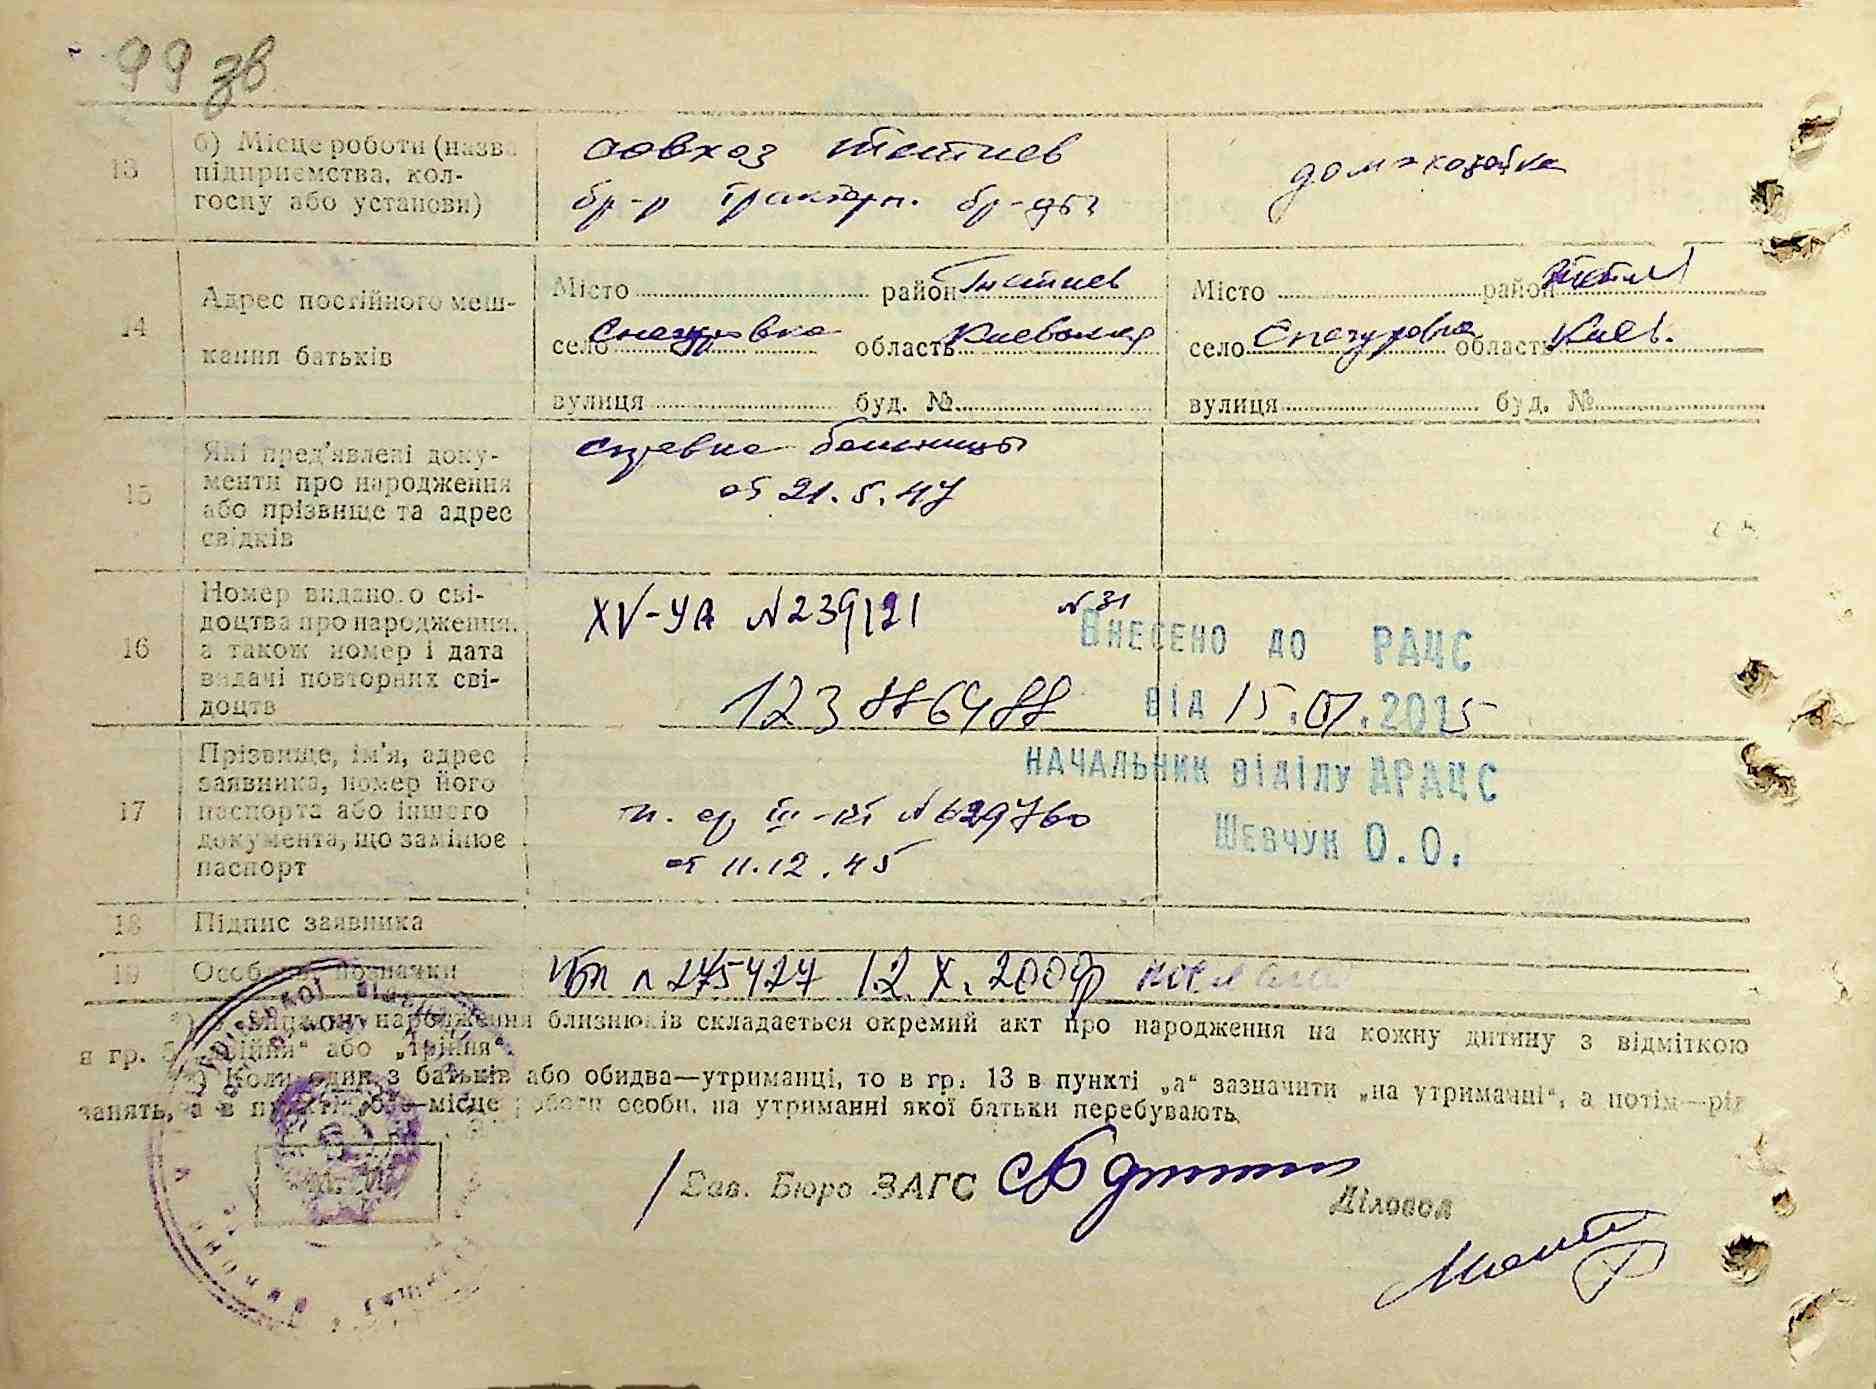 99 зв
13
б) Місце роботи (назва
підприємства, кол-
госпу або установи)
совхоз Тетиев
бр-р тракторн. бр-ды
домохозяйка
14
Адрес постійного меш-
кання батьків
Місто район Тетиев
село Снегуровка область Киевская
вулиця буд. №
Місто район Тетиев
село Снегуровка область Киев.
вулиця буд. №
15
Які пред'явлені доку-
менти про народження
або прізвище та адрес
свідків
справка больницы
от 21.5.47
16
Номер видано.о сві-
доцтва про народження,
а також номер і дата
видачі повторних сві-
доцтв
XV-УА №239121 №31
123886488
Внесено до РАЦС
від 15.07.2015
начальник відділу ДРАЦС
Шевчук О.О.
17
Прізвище, ім'я, адрес
заявника, номер його
паспорта або іншого
документа, що замінює
паспорт
№ 629760
от 11.12.45
18
Підпис заявника
19
Особливі позначки
275427 12.X.2009р
*) У випадку народження близнюків складається окремий акт про народження на кожну дитину з відміткою
в гр. 5 „двійня“ або „трійня“.
) Коли один з батьків або обидва—утриманці, то в гр. 13 в пункті „а“ зазначити „на утриманні“, а потім—рід
занять, а в пункті „б“—місце роботи особи, на утриманні якої батьки перебувають.
Зав. Бюро ЗАГС
Діловод